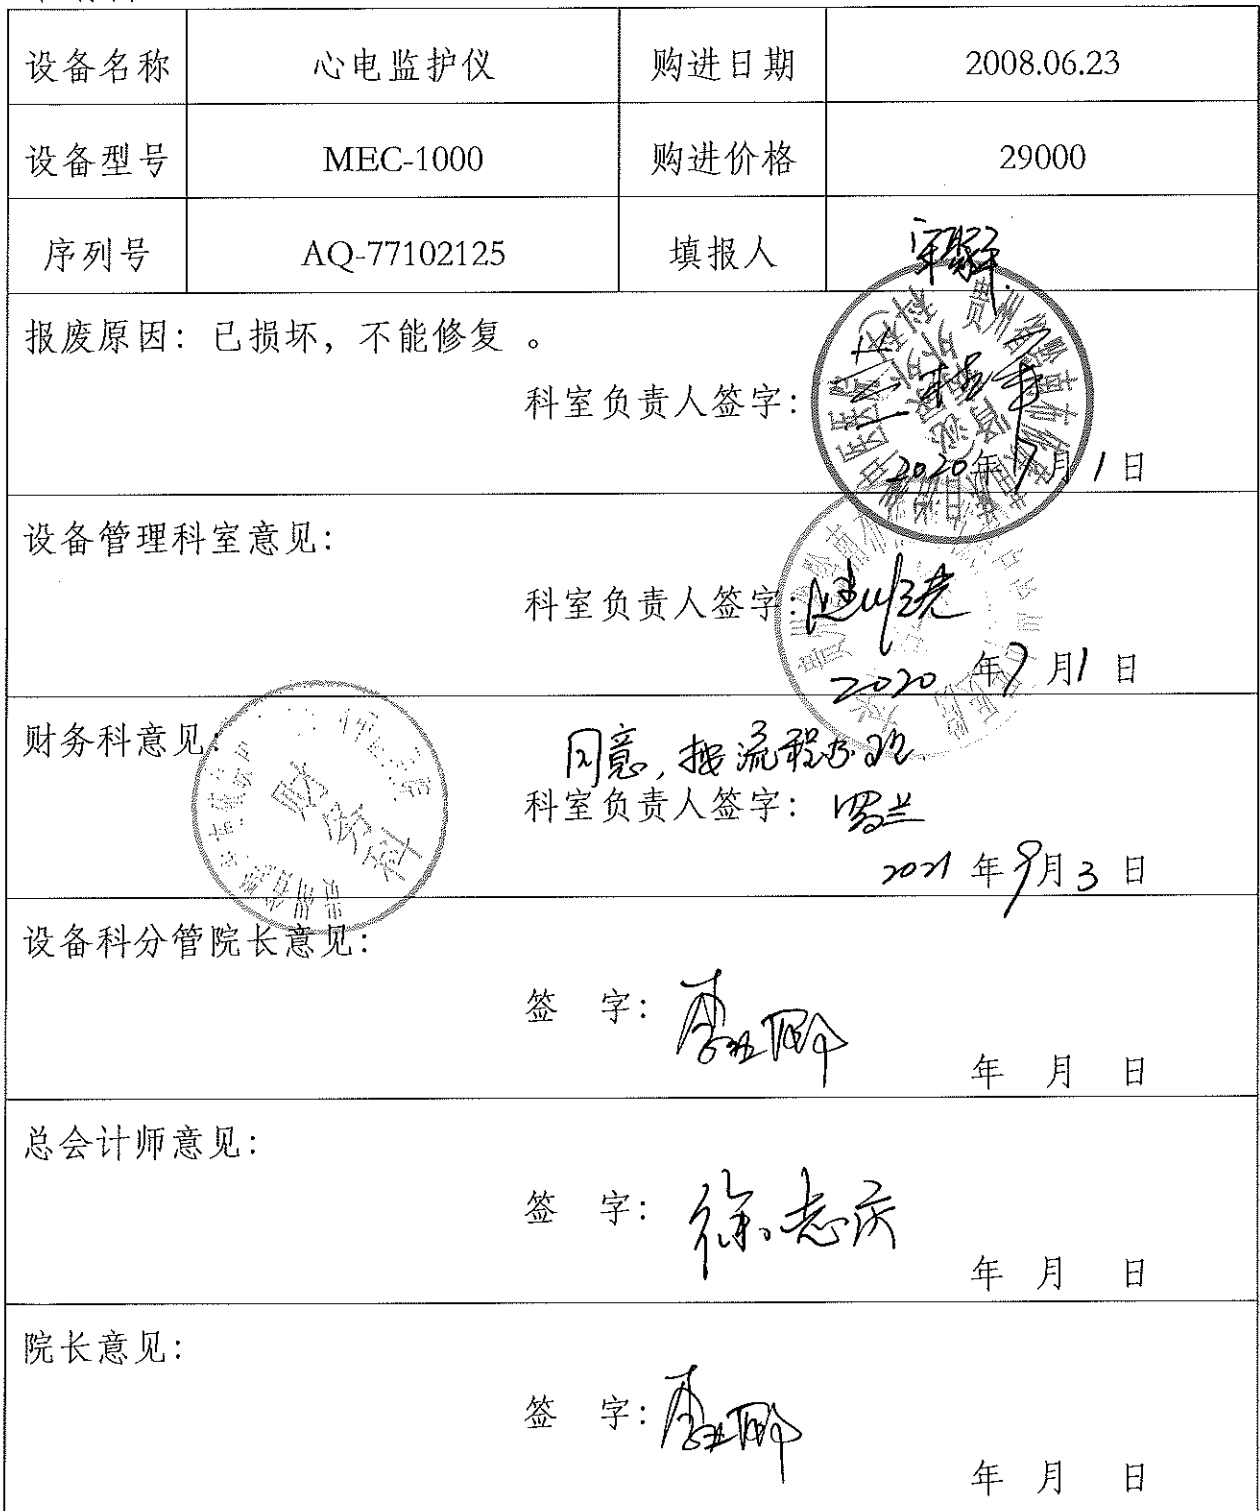 设备名称 心电监护仪 购进日期 2008.06.23
设备型号 MEC-1000 购进价格 29000
序列号 AQ-77102125 填报人
报废原因：已损坏，不能修复 。
科室负责人签字：
2020年7月1日
设备管理科室意见：
科室负责人签字：
2020 年7月1日
财务科意见：
财务科
同意，按流程办理
科室负责人签字：罗兰
2021 年9月3日
设备科分管院长意见：
签 字：
年 月 日
总会计师意见：
签 字：徐志庆
年 月 日
院长意见：
签 字：
年 月 日